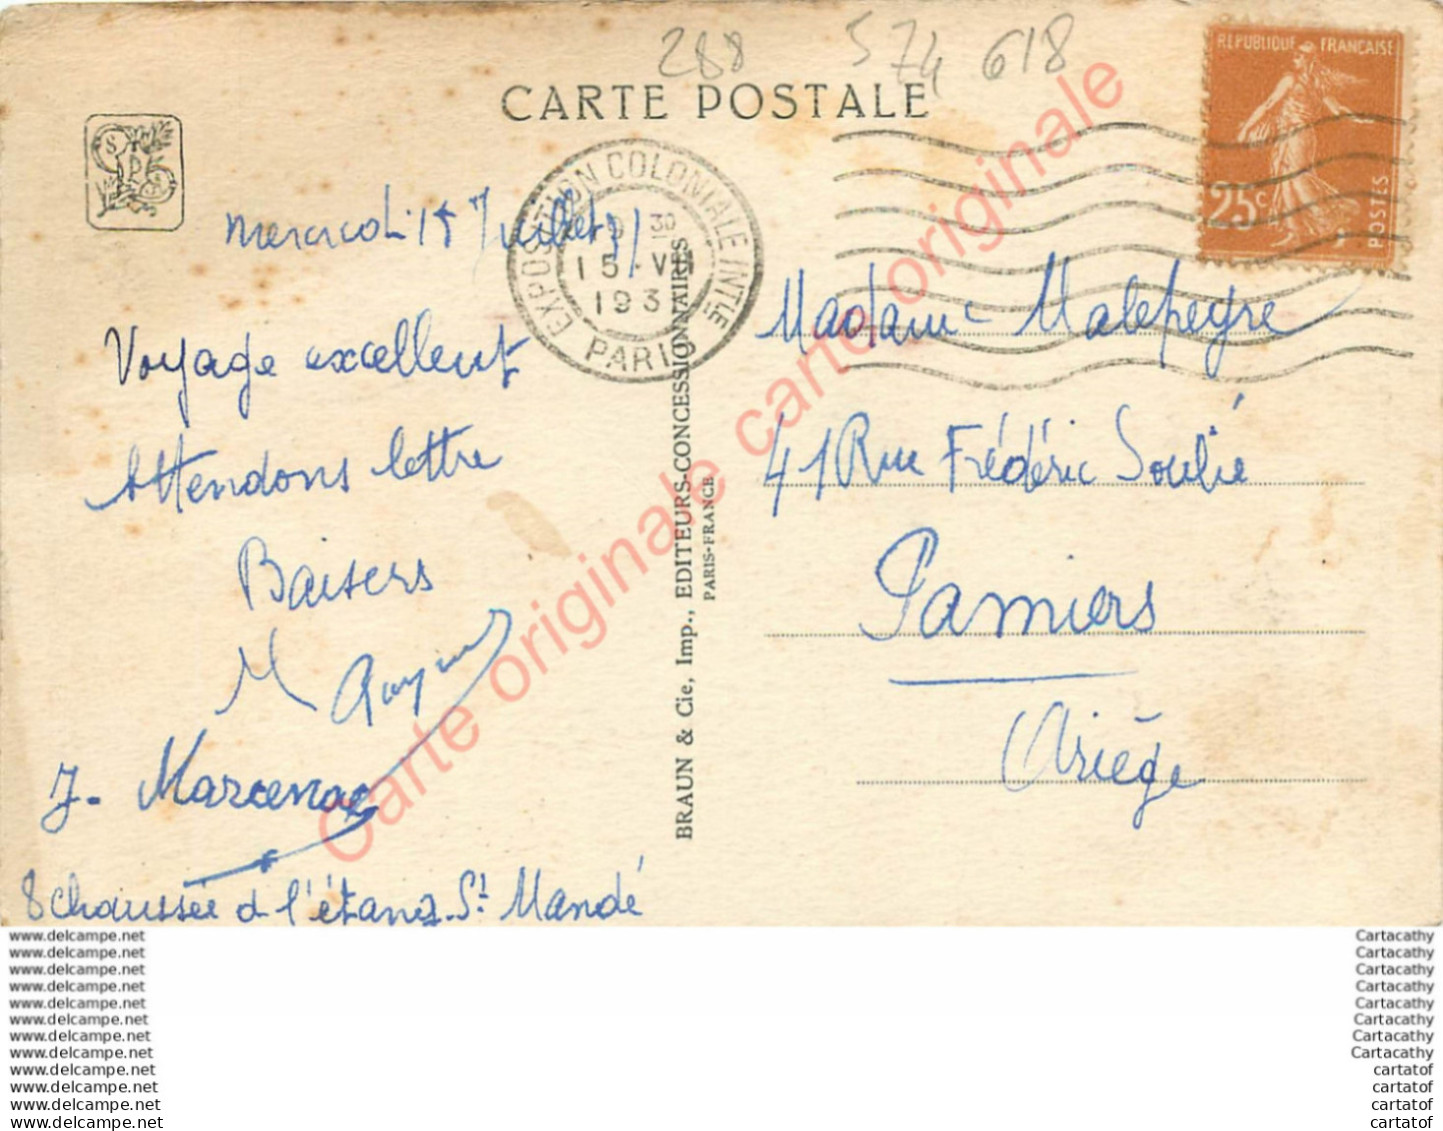 288 574 618
CARTE POSTALE
REPUBLIQUE FRANCAISE
25c
POSTES
EXPOSITION COLONIALE INTLE
30
15 · VII
1931
PARIS
mercredi 15 Juillet 31
Voyage excellent
Attendons lettre
Baisers
M
J. Marcenac
8 chaussée d l'étang. St Mandé
BRAUN & Cie, Imp., EDITEURS-CONCESSIONNAIRES
PARIS-FRANCE
Madame Malepeyre
41 Rue Frédéric Soulié
Pamiers
Ariège
Carte originale carte originale
www.delcampe.net
www.delcampe.net
www.delcampe.net
www.delcampe.net
www.delcampe.net
www.delcampe.net
www.delcampe.net
www.delcampe.net
www.delcampe.net
www.delcampe.net
www.delcampe.net
www.delcampe.net
Cartacathy
Cartacathy
Cartacathy
Cartacathy
Cartacathy
Cartacathy
Cartacathy
Cartacathy
cartatof
cartatof
cartatof
cartatof